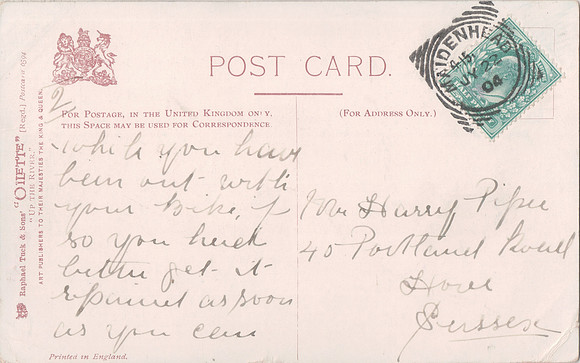 POST CARD.
FOR POSTAGE, IN THE UNITED KINGDOM ONLY,
THIS SPACE MAY BE USED FOR CORRESPONDENCE
(FOR ADDRESS ONLY.)
MAIDENHEAD
JY 22
04
2
which you have
been out with
your bike, if
so you had
better get it
repaired as soon
as you can
Mr Harry Piper
40 Portland Road
Hove
Sussex
Raphael Tuck & Sons' "OILETTE" [Regd.] Postcard 6594
"UP THE RIVER."
ART PUBLISHERS TO THEIR MAJESTIES THE KING & QUEEN.
Printed in England.